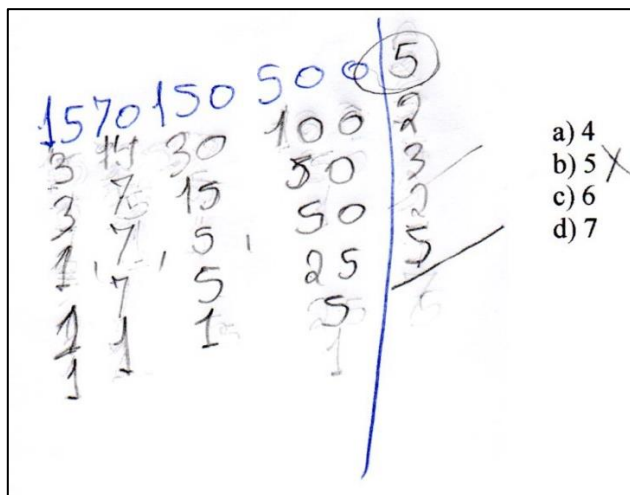 15 70 150 500 5
3 14 30 100 2
3 7 15 50 3
1 7 5 50 2
1 7 5 25 5
1 1 1 5
1 1
a) 4
b) 5 X
c) 6
d) 7